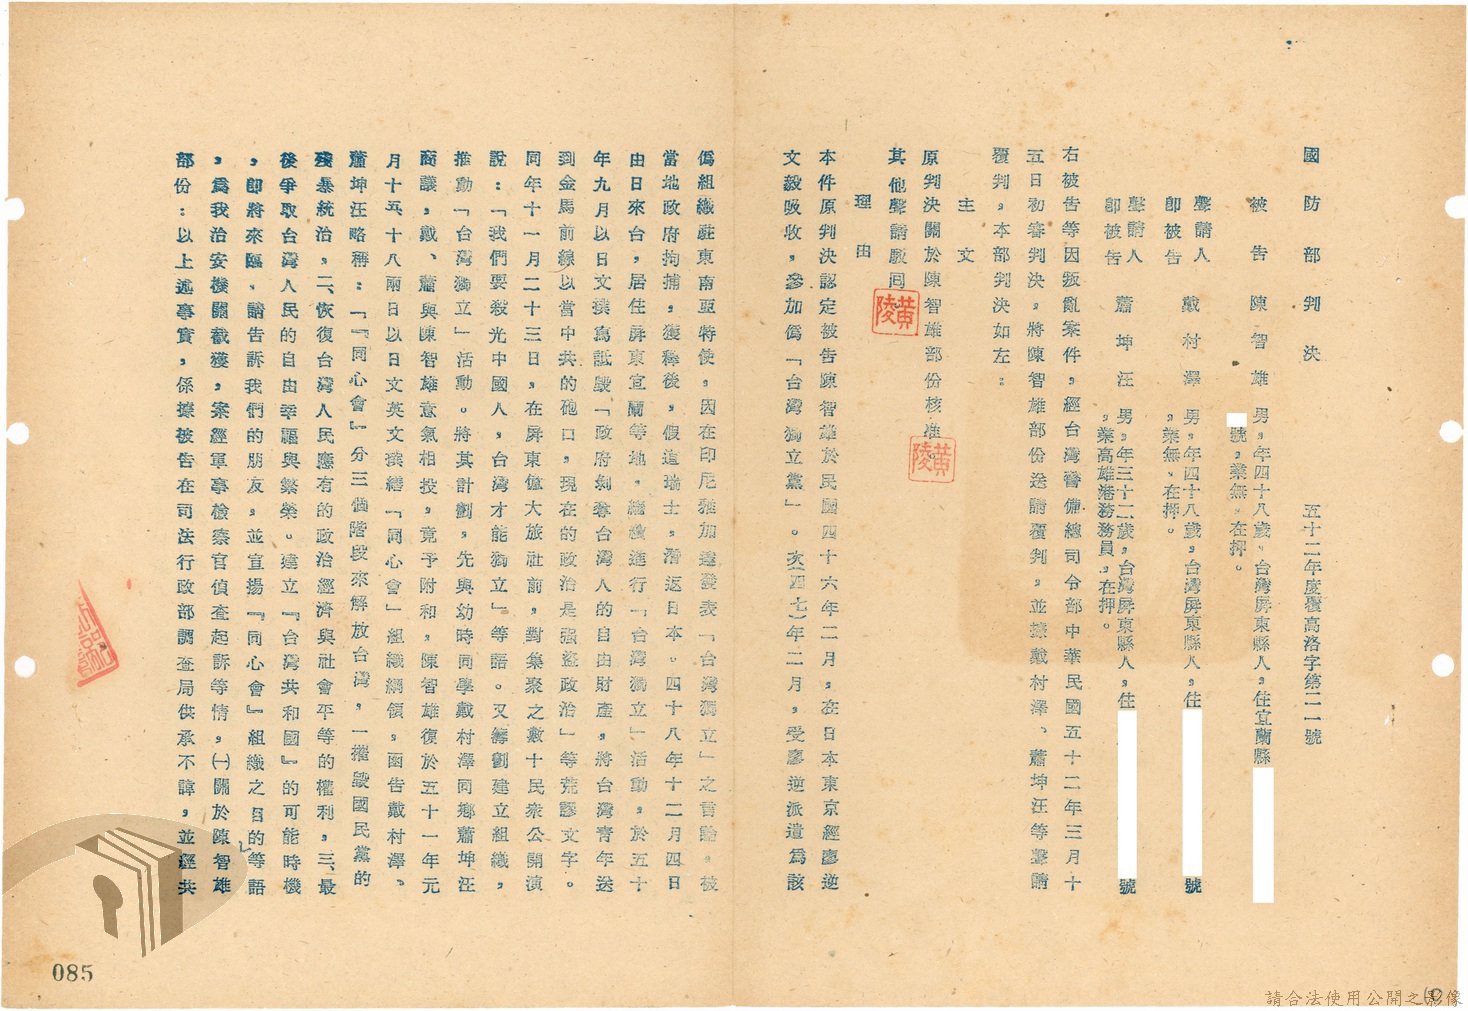 國防部判決　五十二年度覆高洛字第二一號
被告　陳智雄　男，年四十八歲，台灣屏東縣人，住宜蘭縣
號，業無，在押。
聲請人
即被告　戴村澤　男，年四十八歲，台灣屏東縣人，住　號
，業無，在押。
聲請人
即被告　蕭坤汪　男，年三十二歲，台灣屏東縣人，住　號
，業高雄港務務員，在押。
右被告等因叛亂案件，經台灣警備總司令部中華民國五十二年三月十
五日初審判決，將陳智雄部份送請覆判，並據戴村澤、蕭坤汪等聲請
覆判，本部判決如左：
主文
原判決關於陳智雄部份核准。
其他聲請駁回。
黃陵
黃陵
理由
本件原判決認定被告陳智雄於民國四十六年二月，在日本東京經廖逆
文毅吸收，參加偽「台灣獨立黨」。次（四七）年二月，受廖逆派遣為該
偽組織駐東南亞特使，因在印尼雅加達發表「台灣獨立」之言論，被
當地政府拘捕，獲釋後，假道瑞士，潛返日本。四十八年十二月四日
由日來台，居住屏東宜蘭等地，繼續進行「台灣獨立」活動，於五十
年九月以日文撰寫詆毀「政府剝奪台灣人的自由財產，將台灣青年送
到金馬前線以當中共的砲口，現在的政治是強盜政治」等荒謬文字。
同年十一月二十三日，在屏東偉大旅社前，對集聚之數十民衆公開演
說：「我們要殺光中國人，台灣才能獨立」等語。又籌劃建立組織，
推動「台灣獨立」活動。將其計劃，先與幼時同學戴村澤同鄉蕭坤汪
商議，戴、蕭與陳智雄意氣相投，竟予附和，陳智雄復於五十一年元
月十五、十八兩日以日文英文撰繕「同心會」組織綱領，函告戴村澤、
蕭坤汪略稱：「『同心會』分三個階段來解放台灣，一摧毀國民黨的
殘暴統治，二、恢復台灣人民應有的政治經濟與社會平等的權利，三、最
後爭取台灣人民的自由幸福與繁榮。建立『台灣共和國』的可能時機
，即將來臨，請告訴我們的朋友，並宣揚『同心會』組織之目的等語」
，為我治安機關截獲，案經軍事檢察官偵查起訴等情，㈠關於陳智雄
部份：以上述事實，係據被告在司法行政部調查局供承不諱，並經共
085
請合法使用公開之影像